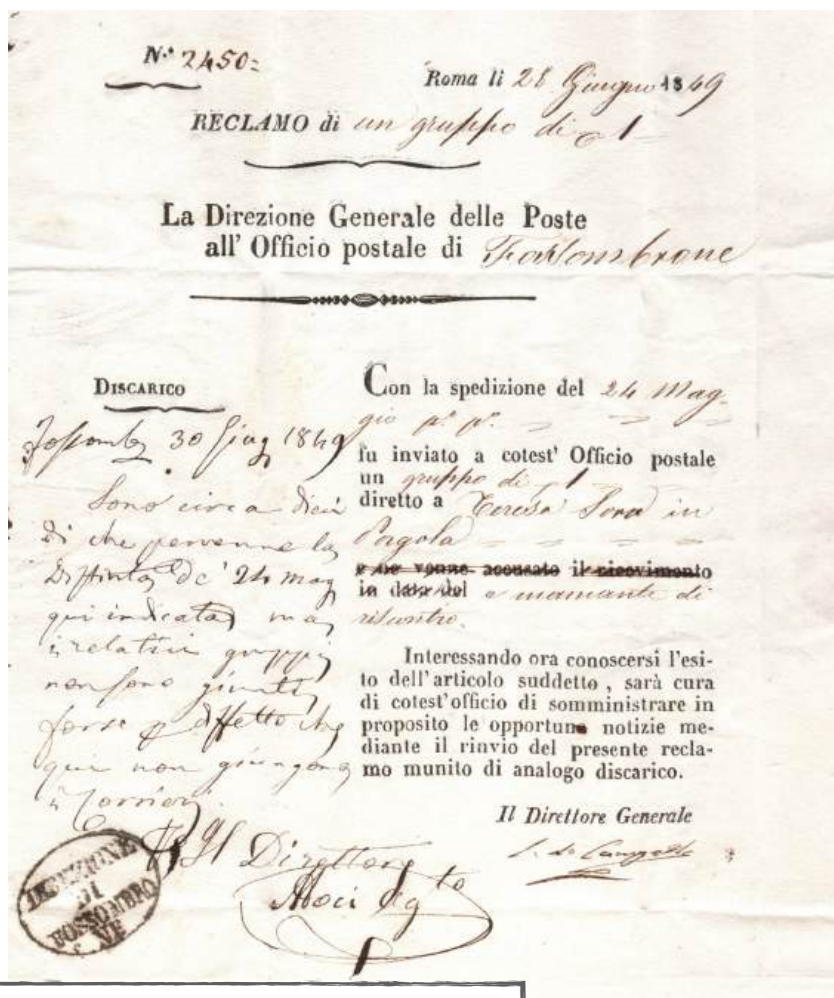 N.º 2450=
Roma li 28 Giugno 1849
RECLAMO di un gruppo di 1
La Direzione Generale delle Poste
all' Officio postale di Fossombrone
DISCARICO
30 Giug 1849
Sono circa dieci
dì che pervenne la
Distinta de' 24 mag
qui indicata ma
i relativi gruppi
non sono giunti
forse p difetto che
qui non giungono
i Corrieri.
Il Direttore
Con la spedizione del 24 Mag-
gio p.º p.º
fu inviato a cotest' Officio postale
un gruppo di 1
diretto a Teresa in
Pergola
e ne venne accusato il ricevimento
in data del e mancante di
riscontro.
Interessando ora conoscersi l'esi-
to dell'articolo suddetto , sarà cura
di cotest'officio di somministrare in
proposito le opportune notizie me-
diante il rinvio del presente recla-
mo munito di analogo discarico.
Il Direttore Generale
DIREZIONE
DI
FOSSOMBRO
NE